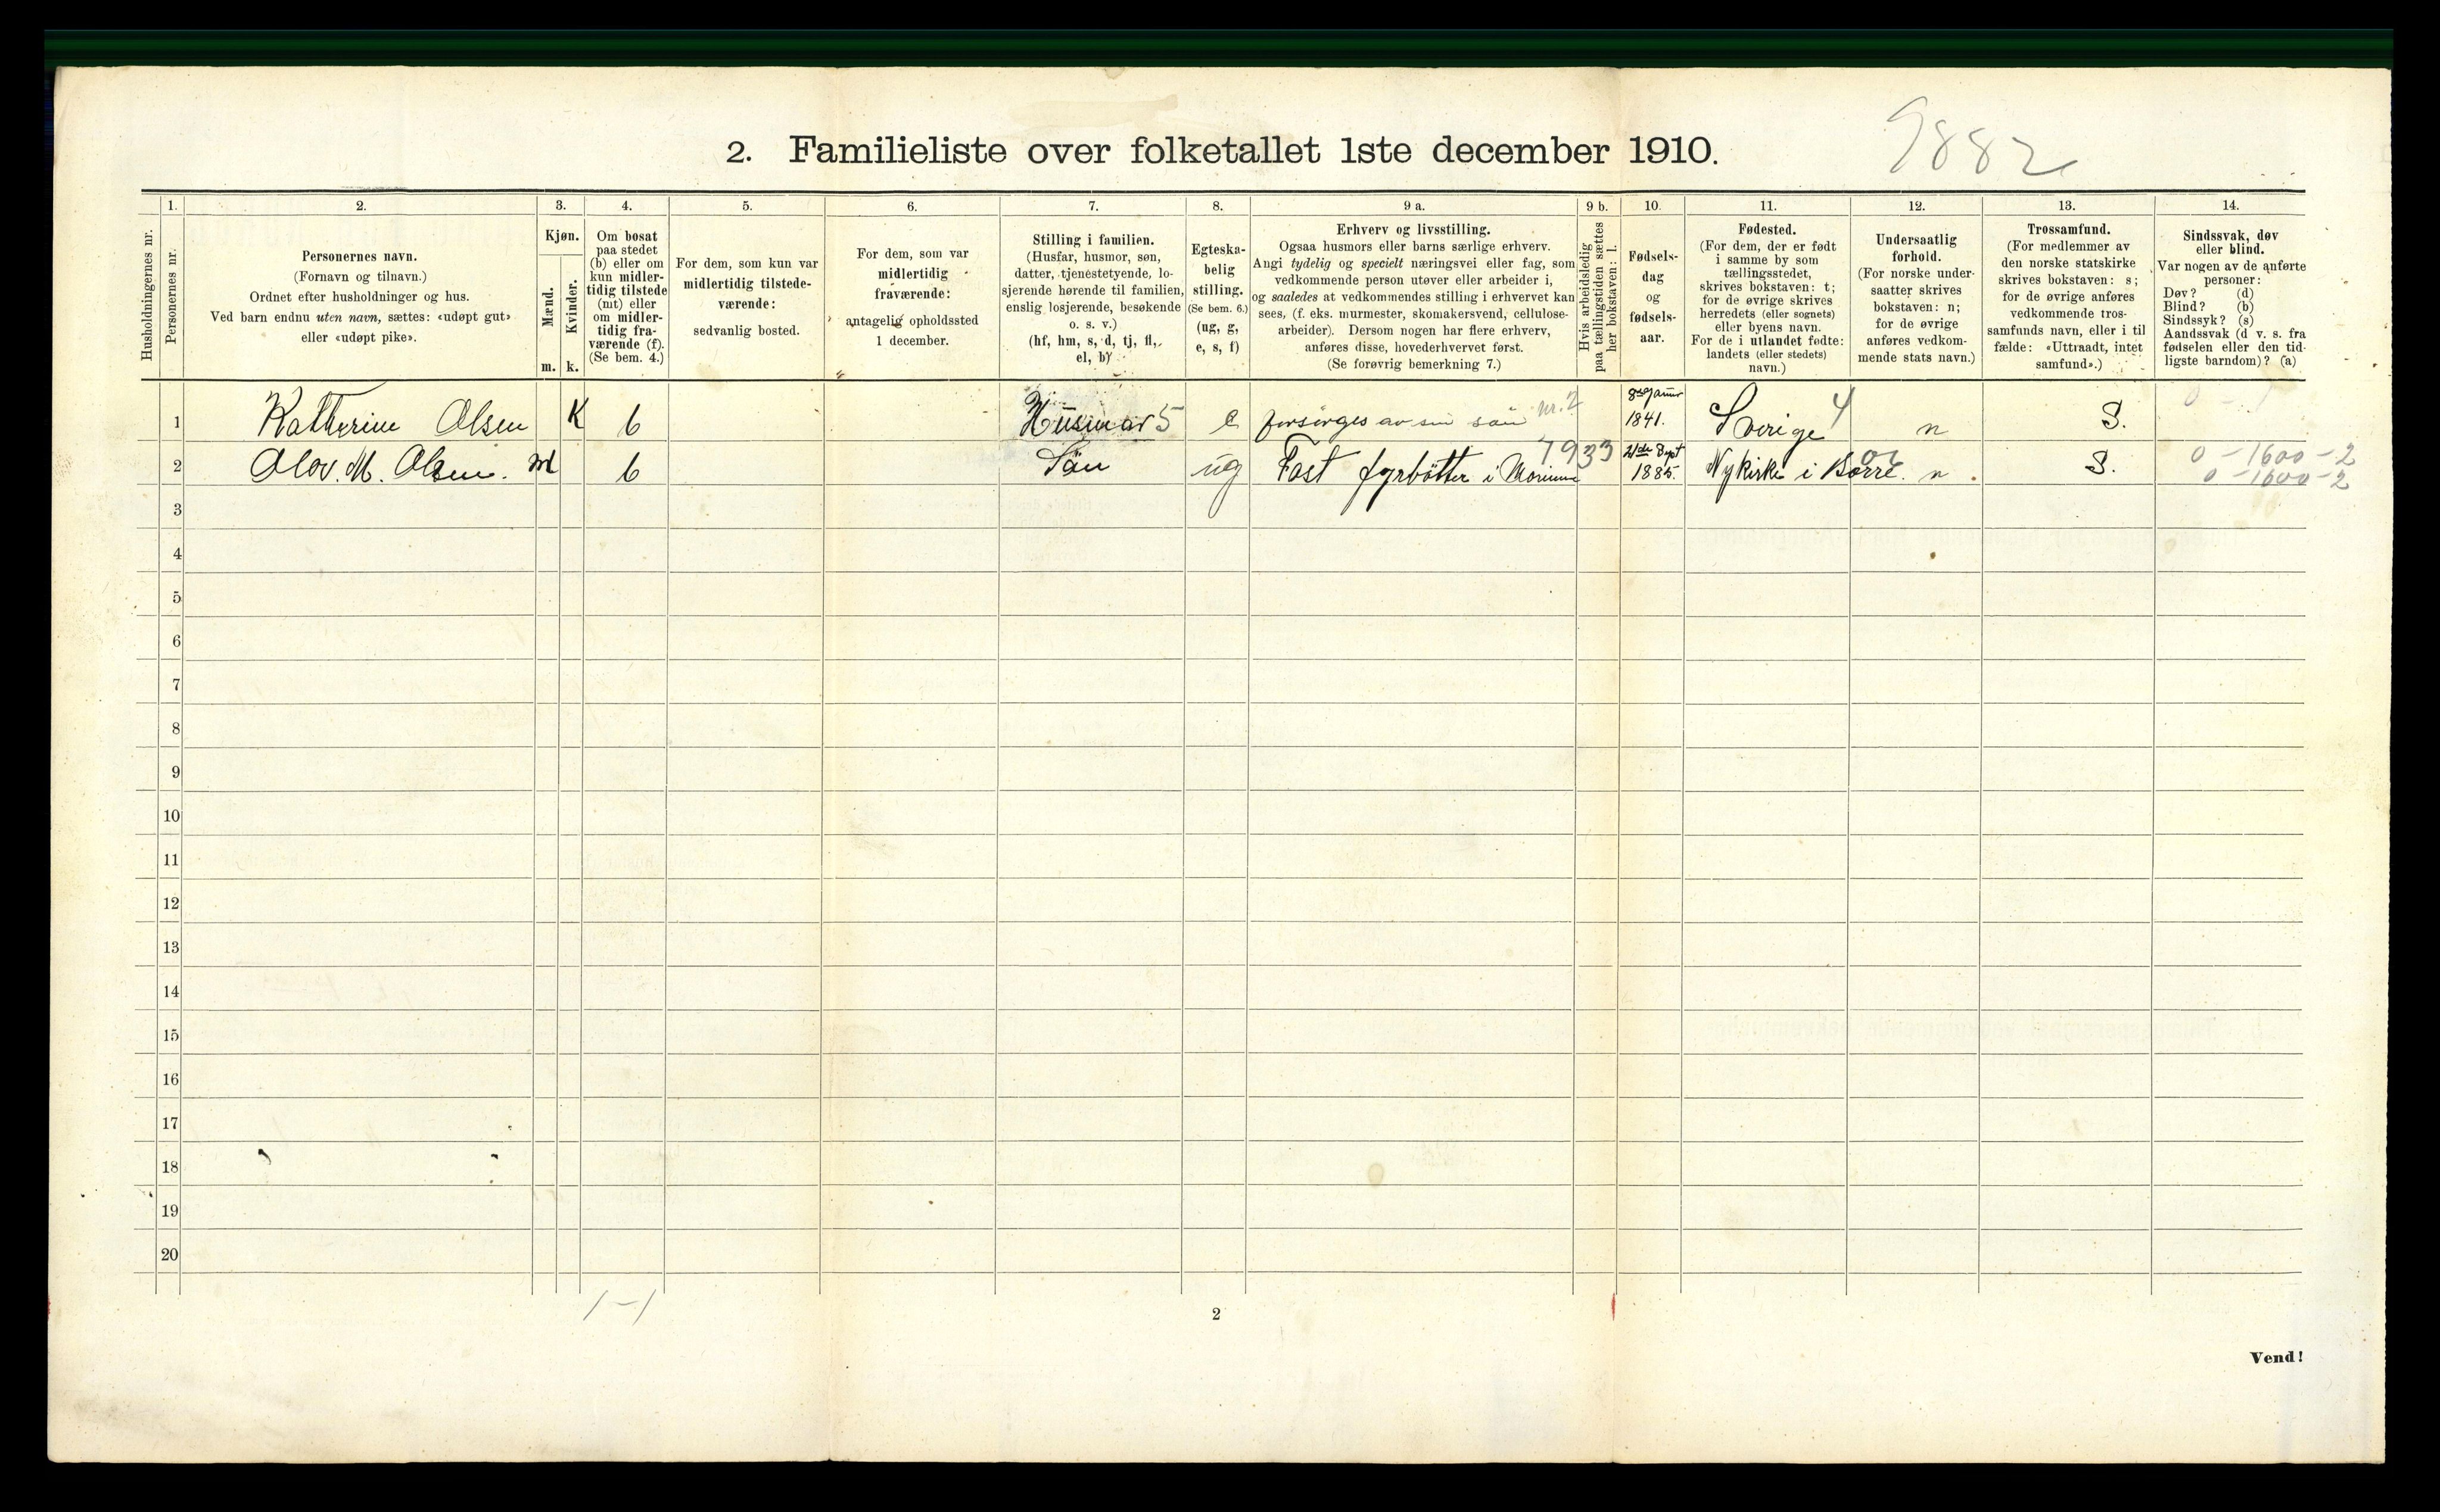 2. Familieliste over folketallet 1ste december 1910.
9882
Husholdningernes nr.
1.
Personernes nr.
2.
Personernes navn.
(Fornavn og tilnavn.)
Ordnet efter husholdninger og hus.
Ved barn endnu uten navn, sættes: «udøpt gut»
eller «udøpt pike».
3.
Kjøn.
Mænd.
Kvinder.
m. k.
4.
Om bosat
paa stedet
(b) eller om
kun midler-
tidig tilstede
(mt) eller
om midler-
tidig fra-
værende (f).
(Se bem. 4.)
5.
For dem, som kun var
midlertidig tilstede-
værende:
sedvanlig bosted.
6.
For dem, som var
midlertidig
fraværende:
antagelig opholdssted
1 december.
7.
Stilling i familien.
(Husfar, husmor, søn,
datter, tjenestetyende, lo-
sjerende hørende til familien,
enslig losjerende, besøkende
o. s. v.)
(hf, hm, s, d, tj, fl,
el, b)
8.
Egteska-
belig
stilling.
(Se bem. 6.)
(ug, g,
e, s, f)
9 a.
Erhverv og livsstilling.
Ogsaa husmors eller barns særlige erhverv.
Angi tydelig og specielt næringsvei eller fag, som
vedkommende person utøver eller arbeider i,
og saaledes at vedkommendes stilling i erhvervet kan
sees, (f. eks. murmester, skomakersvend, cellulose-
arbeider). Dersom nogen har flere erhverv,
anføres disse, hovederhvervet først.
(Se forøvrig bemerkning 7.)
9 b.
Hvis arbeidsledig
paa tællingstiden sættes
her bokstaven: l.
10.
Fødsels-
dag
og
fødsels-
aar.
11.
Fødested.
(For dem, der er født
i samme by som
tællingsstedet,
skrives bokstaven: t;
for de øvrige skrives
herredets (eller sognets)
eller byens navn.
For de i utlandet fødte:
landets (eller stedets)
navn.)
12.
Undersaatlig
forhold.
(For norske under-
saatter skrives
bokstaven: n;
for de øvrige
anføres vedkom-
mende stats navn.)
13.
Trossamfund.
(For medlemmer av
den norske statskirke
skrives bokstaven: s;
for de øvrige anføres
vedkommende tros-
samfunds navn, eller i til
fælde: «Uttraadt, intet
samfund».)
14.
Sindssvak, døv
eller blind.
Var nogen av de anførte
personer:
Døv? (d)
Blind? (b)
Sindssyk? (s)
Aandssvak (d v. s. fra
fødselen eller den tid-
ligste barndom)? (a)
1 Katherine Olsen K b Husmor 5 e forsørges av sin søn nr. 2 1841. Sverige 4 n S.
2 Olov. M. Olsen. M b Søn ug Fast fyrbötter i Marinen 7933 21de Sept 1885. Nykirke i Borre. 02 n. S. 0-1600-2
0-1600-2
3
4
5
6
7
8
9
10
11
12
13
14
15
16
17
18
19
20
1-1
2
Vend!